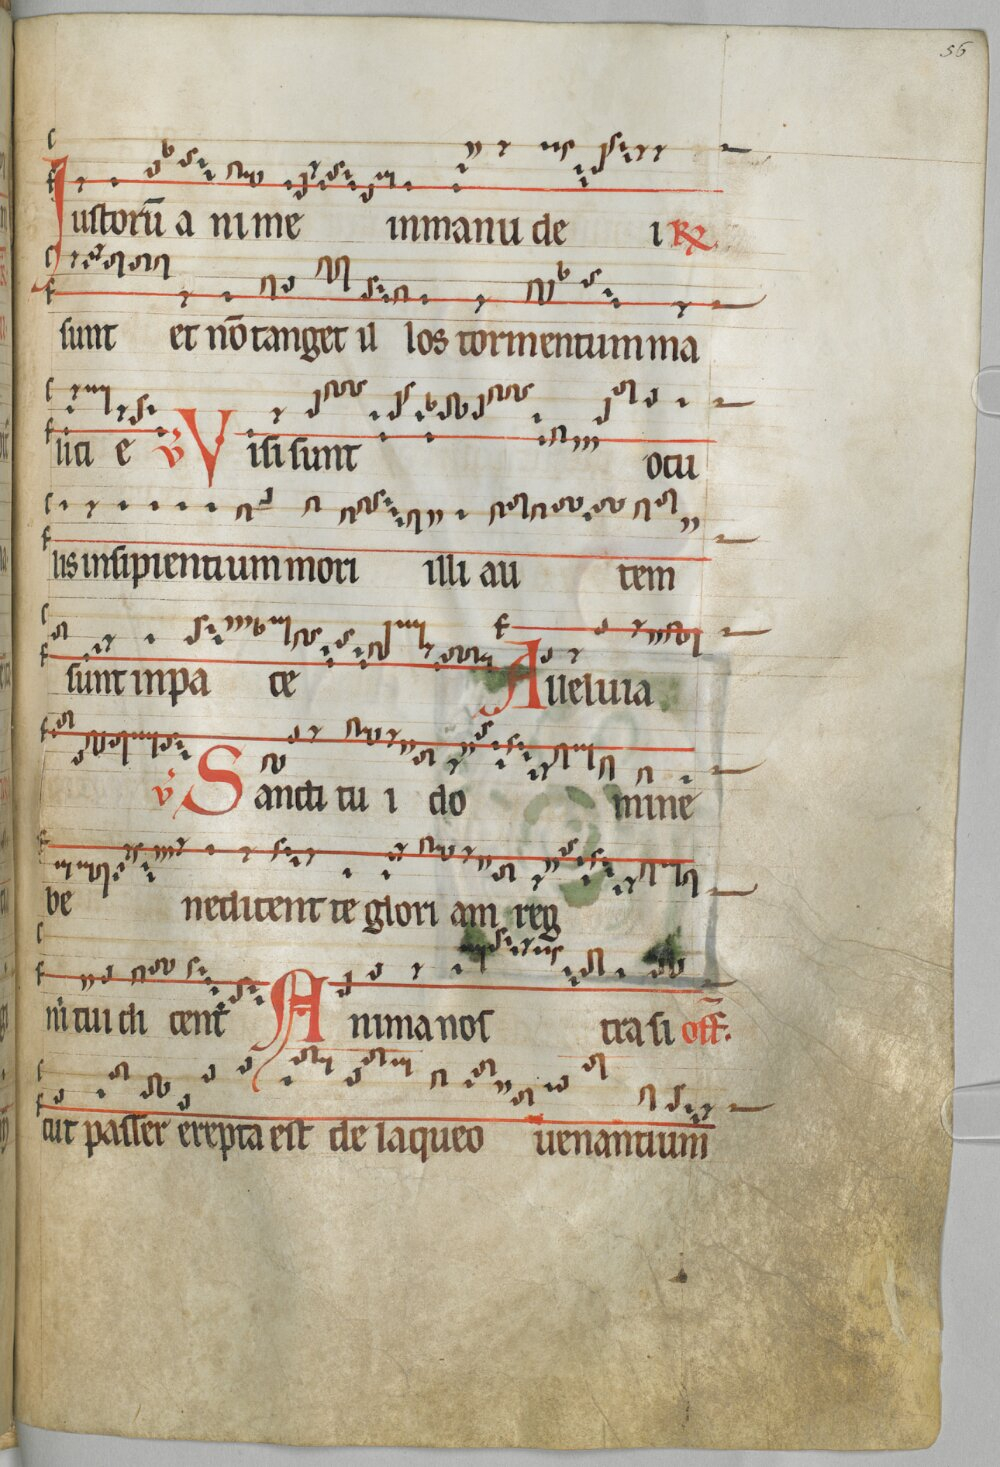 56
Iustorū a nime inmanu de i R℣
sunt et nō tanget il los tormentum ma
lici e v̄ Visi sunt ocu
lis insipientium mori illi au tem
sunt inpa ce Alleluia
v̄ Sancti tu i do mine
be nedicent te glori am reg
ni tui di cent Anima nos tra si off̄.
cut passer erepta est de laqueo uenantium